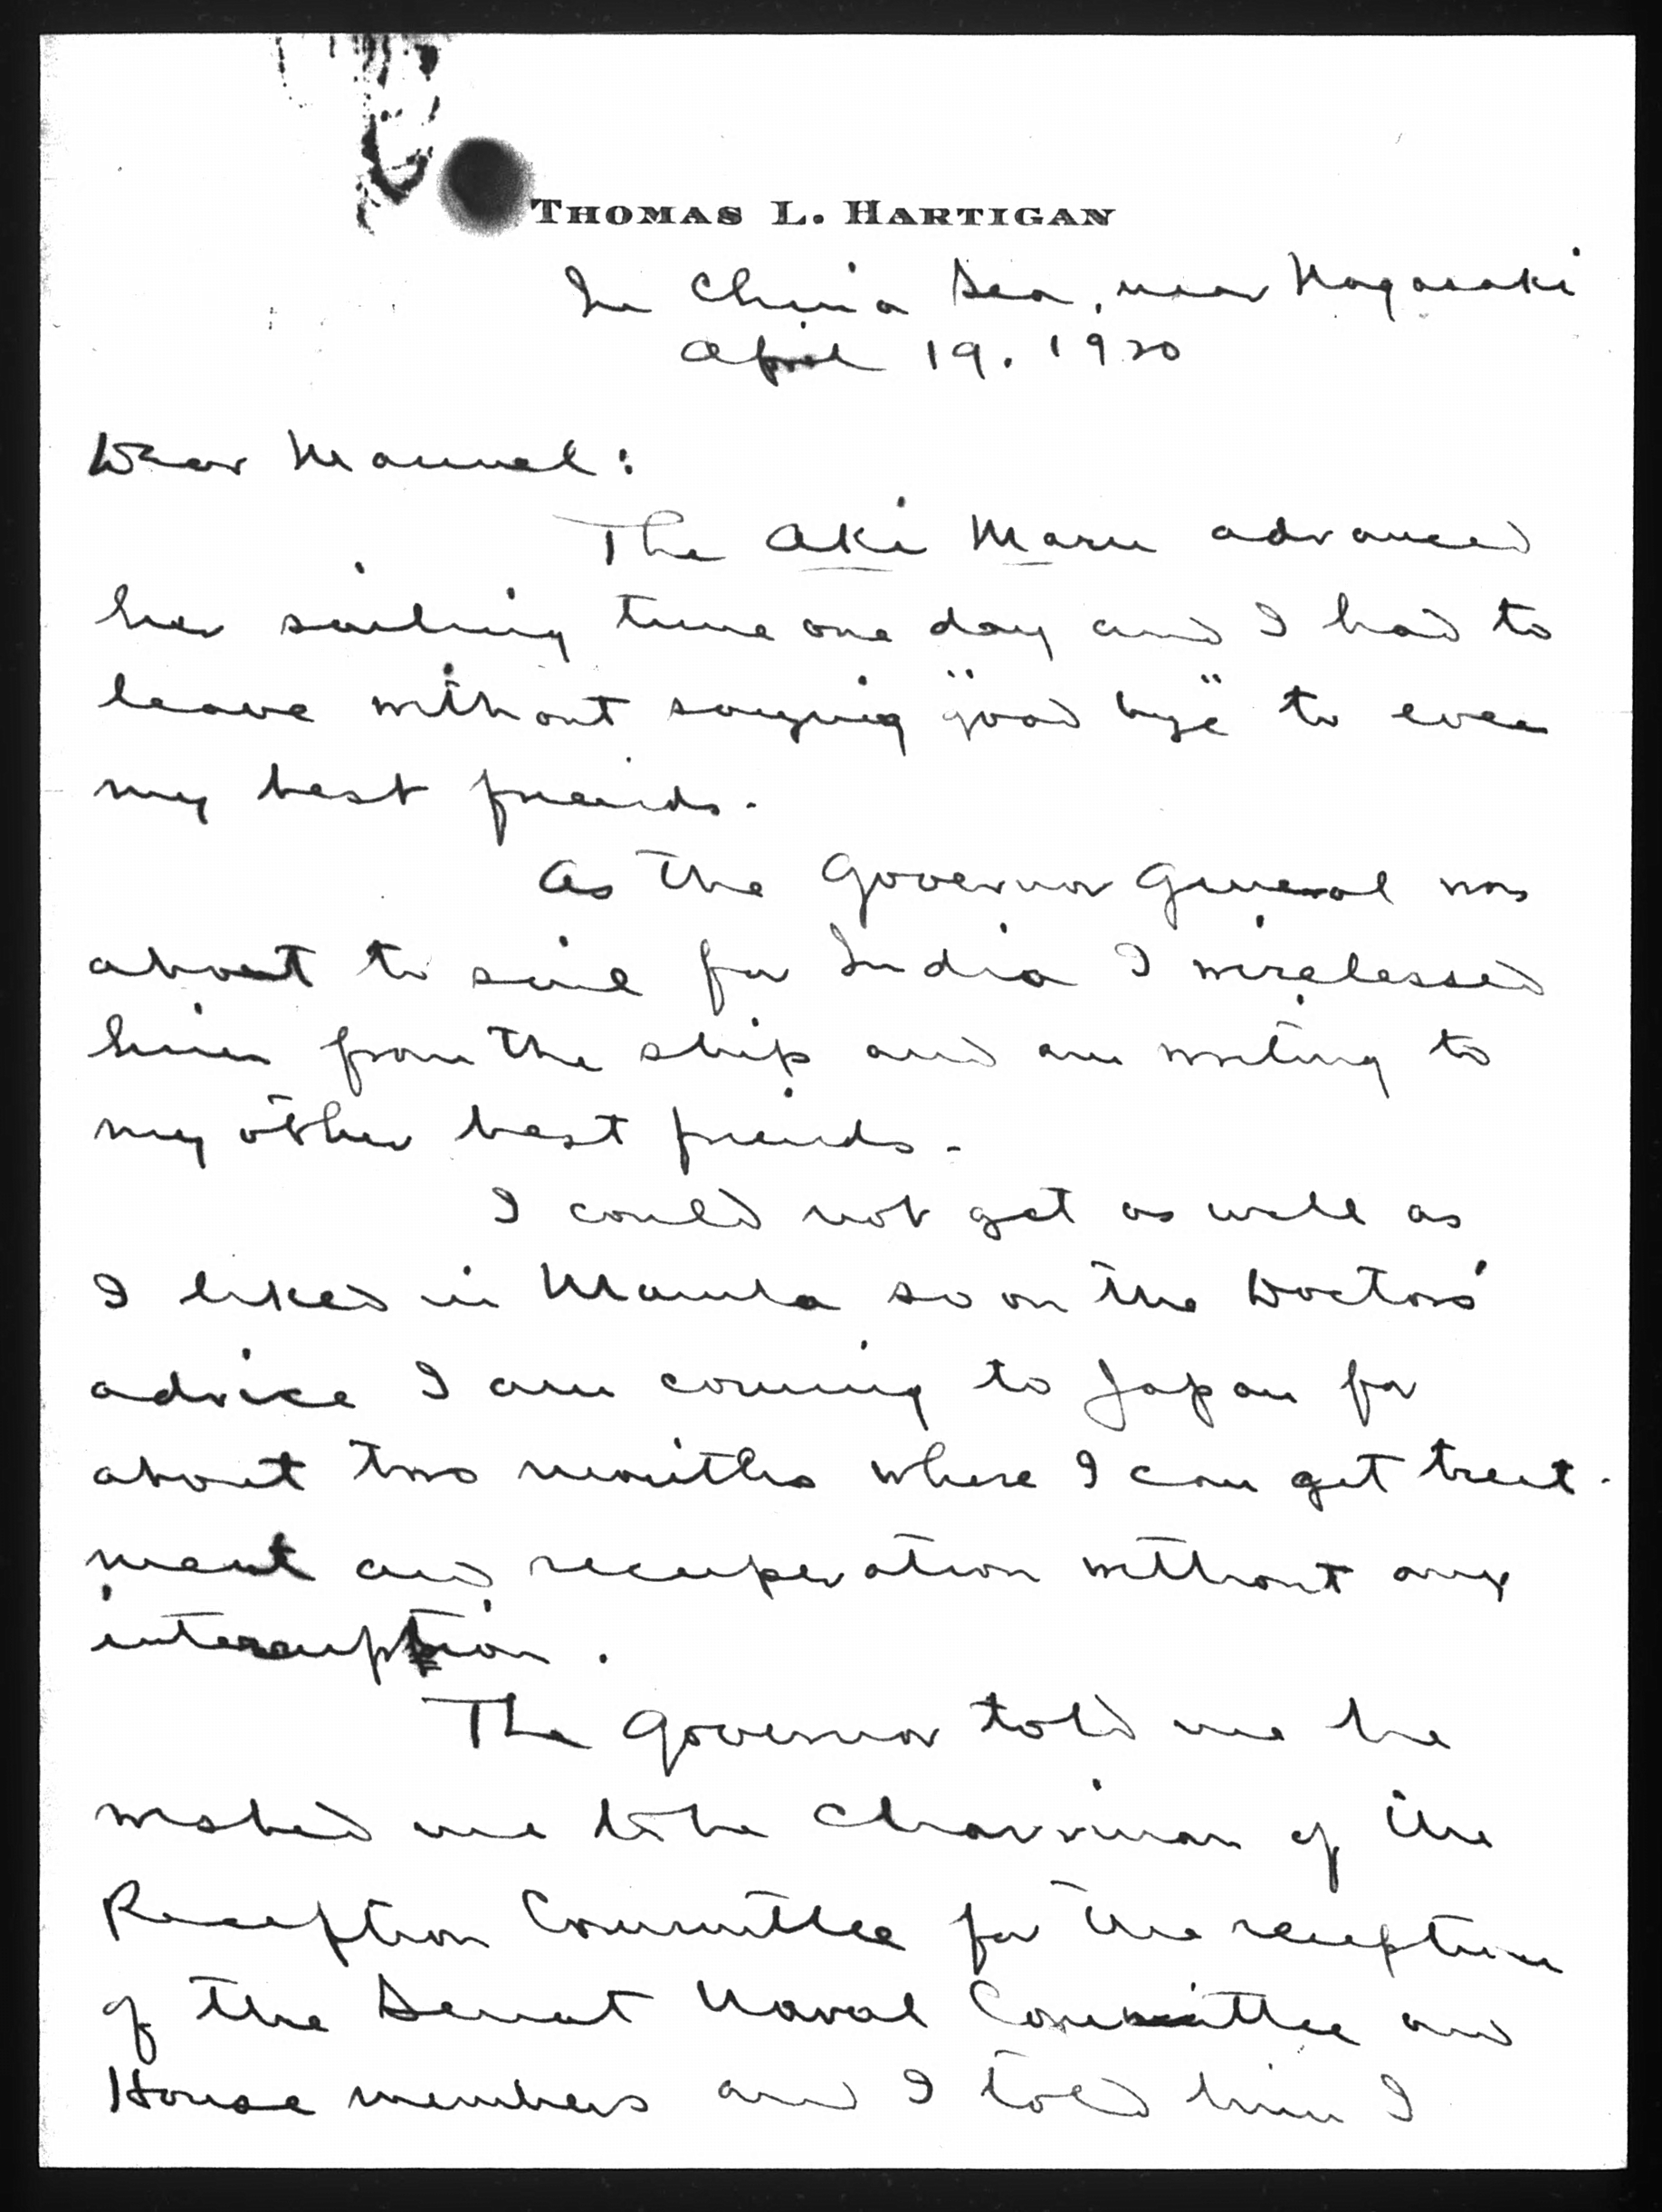 THOMAS L. HARTIGAN
In China Sea, near Nagasaki
April 19. 1920
Dear Manuel:
The Aki Maru advanced
her sailing time one day and I had to
leave without saying "good bye" to even
my best friends.
As the Governor General was
about to sail for India I wirelessed
him from the ship and am writing to
my other best friends.
I could not get as well as
I liked in Manila so on the Doctors'
advice I am coming to Japan for
about two months where I can get treat-
ment and recuperation without any
interruption.
The Governor told me he
wished me to be Chairman of the
Reception Committee for the reception
of the Senat Naval Committee and
House members and I told him I